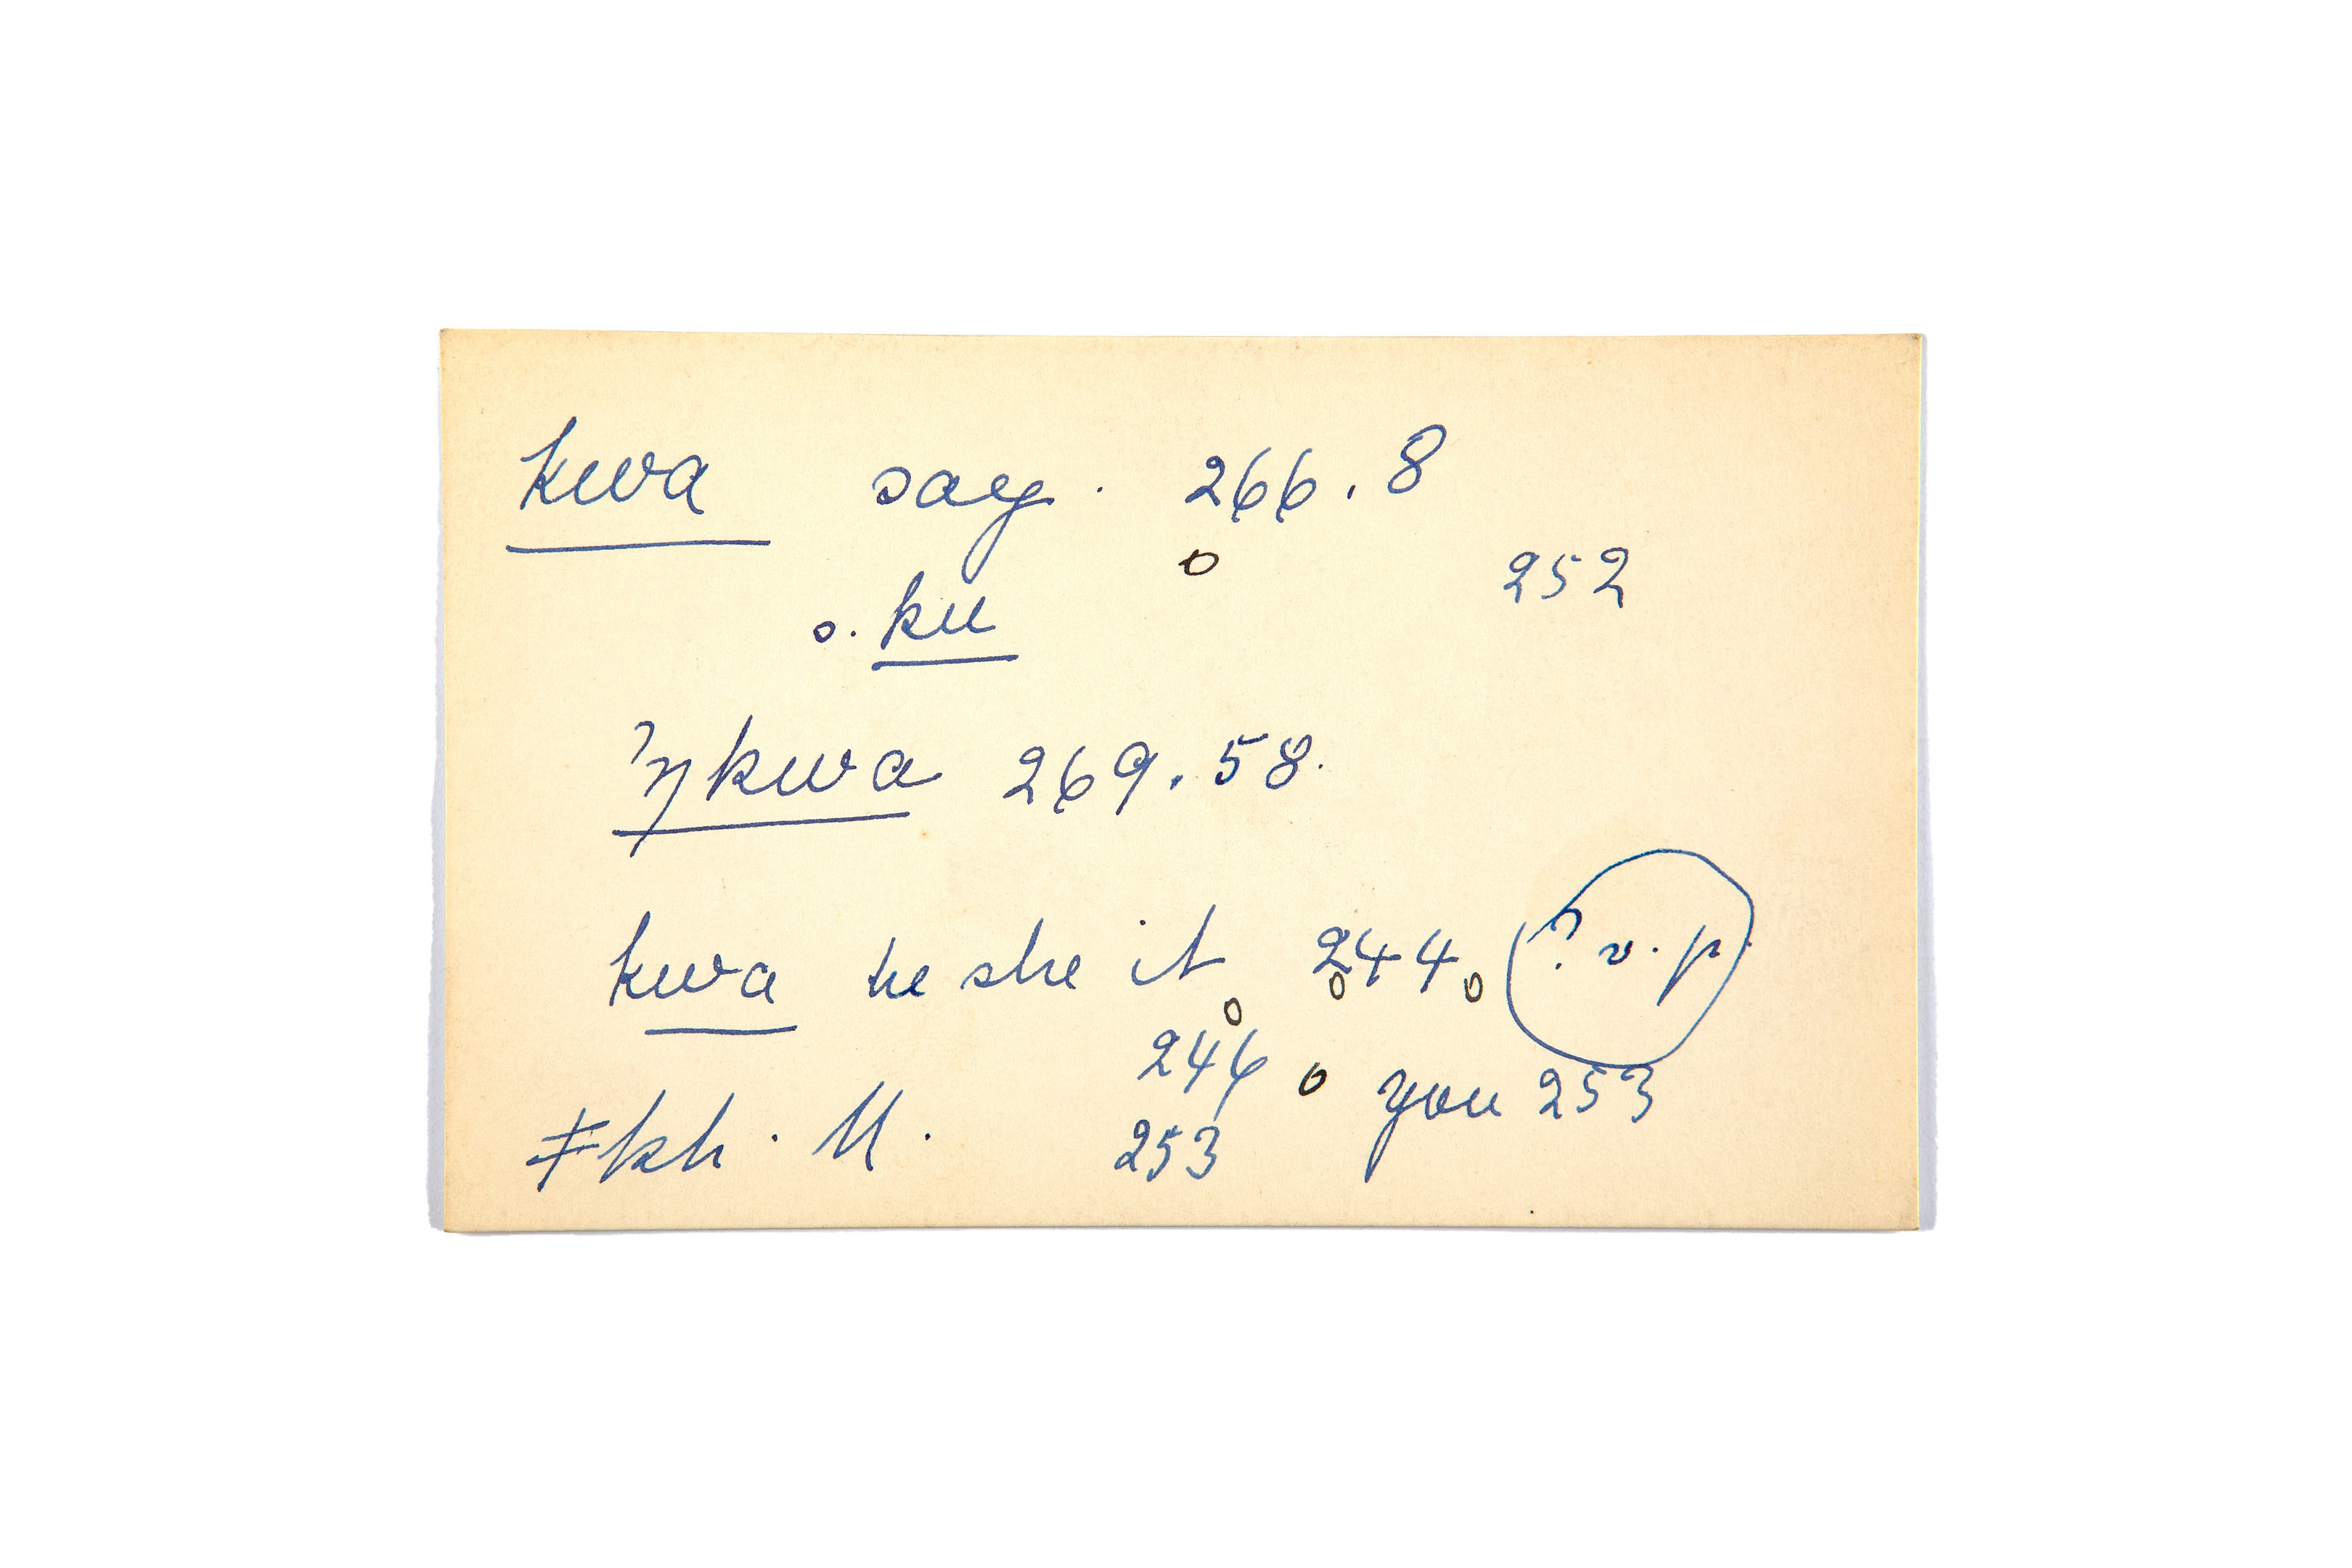 kwa say. 266.8
252
o. ku
ʔŋkwa 269.58.
kwa he she it 244. ? v. p.
246 you 253
≠kh. 11. 253